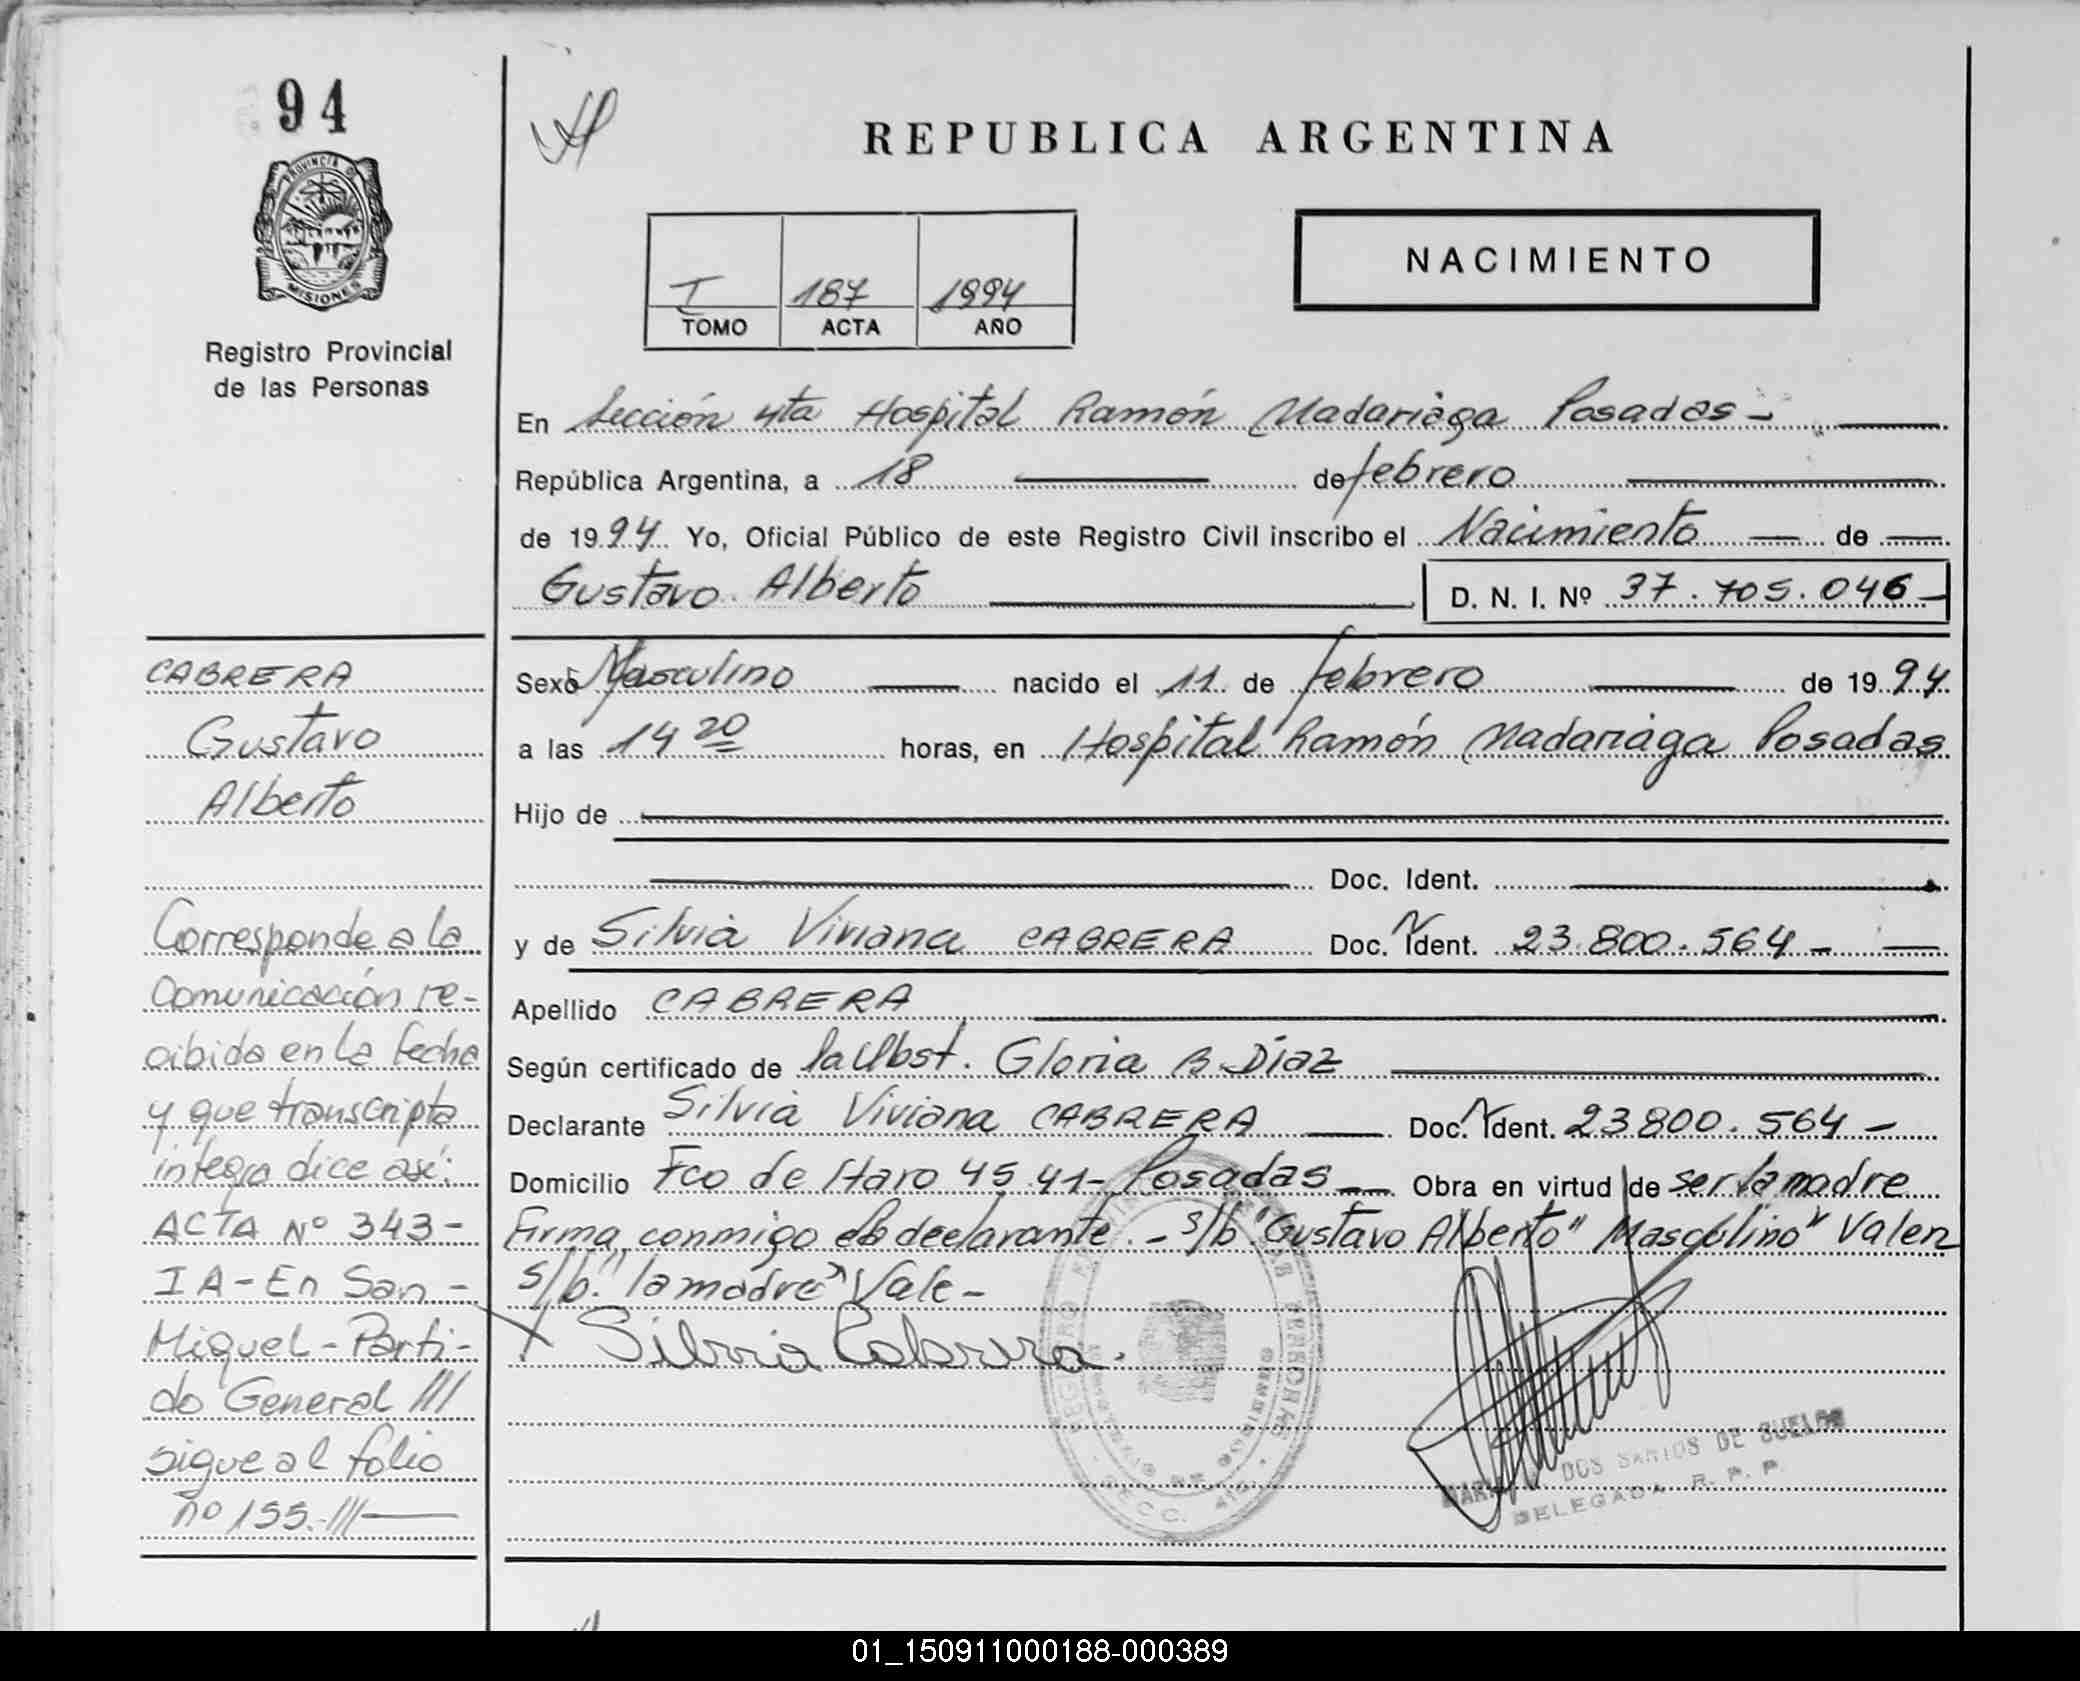 94
PROVINCIA DE
MISIONES
Registro Provincial
de las Personas
REPUBLICA ARGENTINA
NACIMIENTO
I 187 1994
TOMO ACTA AÑO
En Sección 4ta Hospital Ramón Madariaga Posadas -
República Argentina, a 18 de febrero
de 1994 Yo, Oficial Público de este Registro Civil inscribo el Nacimiento de
Gustavo Alberto D. N. I. Nº 37.705.046-
Sexo Masculino nacido el 11 de febrero de 1994
a las 14 20 horas, en Hospital Ramón Madariaga Posadas
Hijo de
Doc. Ident.
y de Silvia Viviana CABRERA Doc. Ident. 23.800.564-
Apellido CABRERA
Según certificado de la Obst. Gloria B. Díaz
Declarante Silvia Viviana CABRERA Doc. Ident. 23.800.564-
Domicilio Fco de Haro 4541- Posadas Obra en virtud de ser la madre
Firma conmigo la declarante.- s/b "Gustavo Alberto" "Masculino" Valen
s/b. "la madre" Vale-
Silvia Cabrera.
DOS SANTOS DE
DELEGADA R. P. P.
CABRERA
Gustavo
Alberto
Corresponde a la
Comunicación re-
cibida en la fecha
y que transcripta
íntegra dice así:
ACTA Nº 343-
I A - En San -
Miguel - Parti-
do General ///
sigue al folio
nº 155.-///
01_150911000188-000389